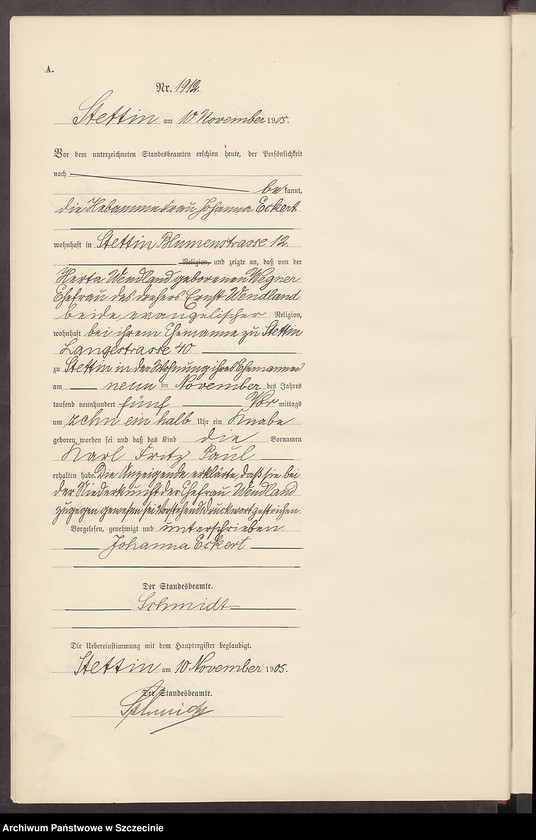 A.
Nr. 1912.
Stettin am 10 November 1905.
Vor dem unterzeichneten Standesbeamten erschien heute, der Persönlichkeit
nach
bekannt,
die Hebamme Frau Johanna Eckert
wohnhaft in Stettin Blumenstrasse 12
Religion, und zeigte an, daß von der
Herta Wendland geborenen Wegner
Ehefrau des Drehers Ernst Wendland
beide evangelischer Religion,
wohnhaft bei ihrem Ehemanne zu Stettin
Langestrasse 40
zu Stettin in der Wohnung ihres Ehemannes
am neun ten November des Jahres
tausend neunhundert fünf Vor mittags
um zehn ein halb Uhr ein Knabe
geboren worden sei und daß das Kind die Vornamen
Karl Fritz Paul
erhalten habe. Die Anzeigende erklärte, daß sie bei
der Niederkunft der Ehefrau Wendland
zugegen gewesen sei. Vorstehend 1 Druckwort gestrichen.
Vorgelesen, genehmigt und unterschrieben
Johanna Eckert
Der Standesbeamte.
Schmidt
Die Uebereinstimmung mit dem Hauptregister beglaubigt.
Stettin am 10. November 1905.
Der Standesbeamte.
Schmidt
Archiwum Państwowe w Szczecinie